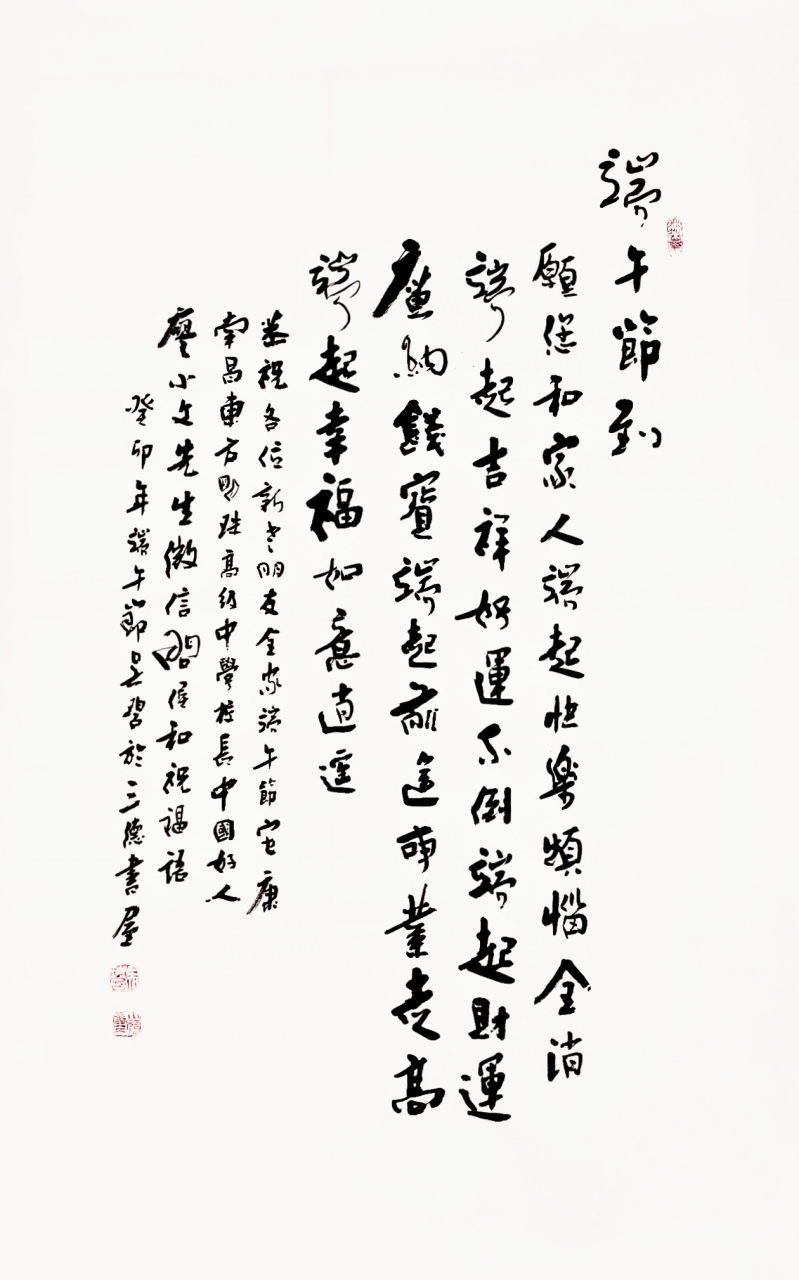 端午節到
願您和家人端起快樂煩惱全消
端起吉祥好運不倒端起財運
廣納錢寶端起前途事業走高
端起幸福如意逍遥
恭祝各位新老朋友全家端午節安康
南昌東方明珠高級中學校長中國好人
廖小文先生微信問候和祝福語
癸卯年端午節吴碧於三德書屋